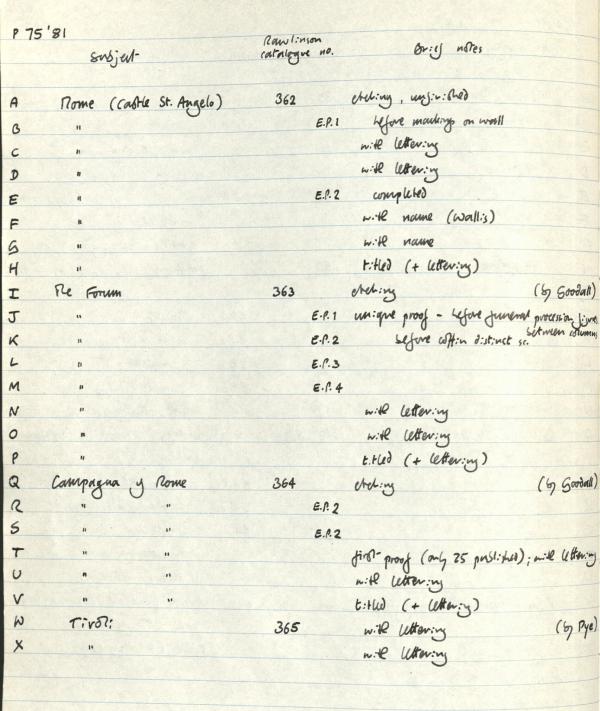 P 75 '81
Subject Rawlinson catalogue no. Brief notes
A Rome (Castle St. Angelo) 362 etching, unfinished
B " E.P.1 before markings on wall
C " with lettering
D " with lettering
E " E.P.2 completed
F " with name (Wallis)
G " with name
H " titled (+ lettering)
I The Forum 363 etching (by Goodall)
J " E.P.1 unique proof - before funeral procession figures between columns
K " E.P.2 before coffin distinct sc.
L " E.P.3
M " E.P.4
N " with lettering
O " with lettering
P " titled (+ lettering)
Q Campagna of Rome 364 etching (by Goodall)
R " " E.P.2
S " " E.P.2
T " " first proof (only 25 published); with lettering
U " " with lettering
V " " titled (+ lettering)
W Tivoli 365 with lettering (by Pye)
X " with lettering